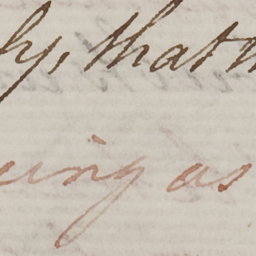 ly, that
ing as